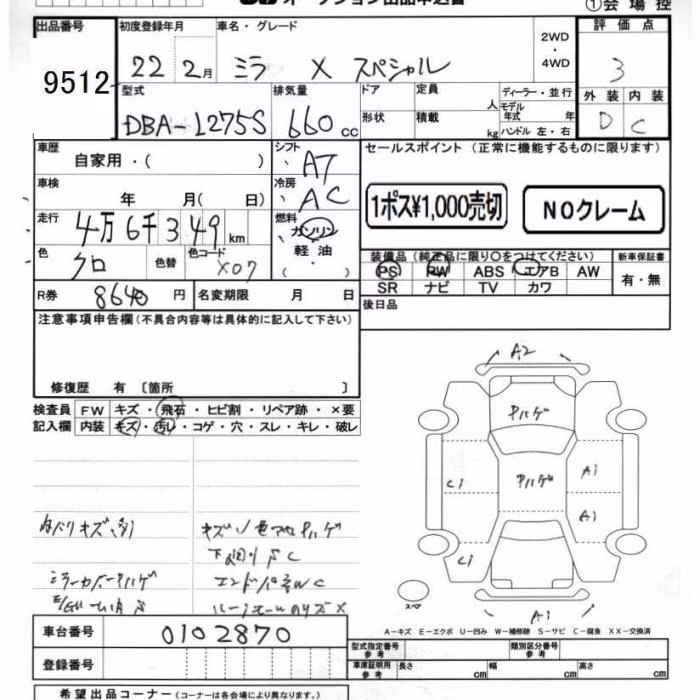 オークション出品申込書
①会場控
出品番号 初度登録年月 車名・グレード 2WD・4WD 評価点
9512 22 2月 ミラ X スペシャル 3
型式 排気量 ドア 定員 人 ディーラー・並行 外装 内装
DBA-L275S 660cc 形状 積載 kg モデル年式 年 D C
ハンドル 左・右
車歴 自家用・( ) シフト AT セールスポイント (正常に機能するものに限ります)
車検 年 月( 日) 冷房 AC 1ポス¥1,000売切 NOクレーム
走行 4万6千349km 燃料 ガソリン 軽油・( )
色 クロ 色替 色コード X07 装備品 (純正品に限り○をつけてください) 新車保証書
PS PW ABS エアB AW 有・無
SR ナビ TV カワ
R券 8640円 名変期限 月 日 後日品
注意事項申告欄(不具合内容等は具体的に記入して下さい)
修復歴 有 〔箇所 〕
検査員 FW キズ・飛石・ヒビ割・リペア跡・×要
記入欄 内装 キズ・汚レ・コゲ・穴・スレ・キレ・破レ
A2
ハゲ
ハゲ
A1
C1
A1
C1
スペア
A1
内ハリキズ
キズ
C
ミラーカバー ハゲ
A-キズ E-エクボ U-凹み W-補修跡 S-サビ C-腐食 XX-交換済
車台番号 0102870 型式指定番号 参考 類別区分番号 参考
登録番号 車庫証明用 参考 長さ cm 幅 cm 高さ cm
希望出品コーナー (コーナーは各会場により異なります。)